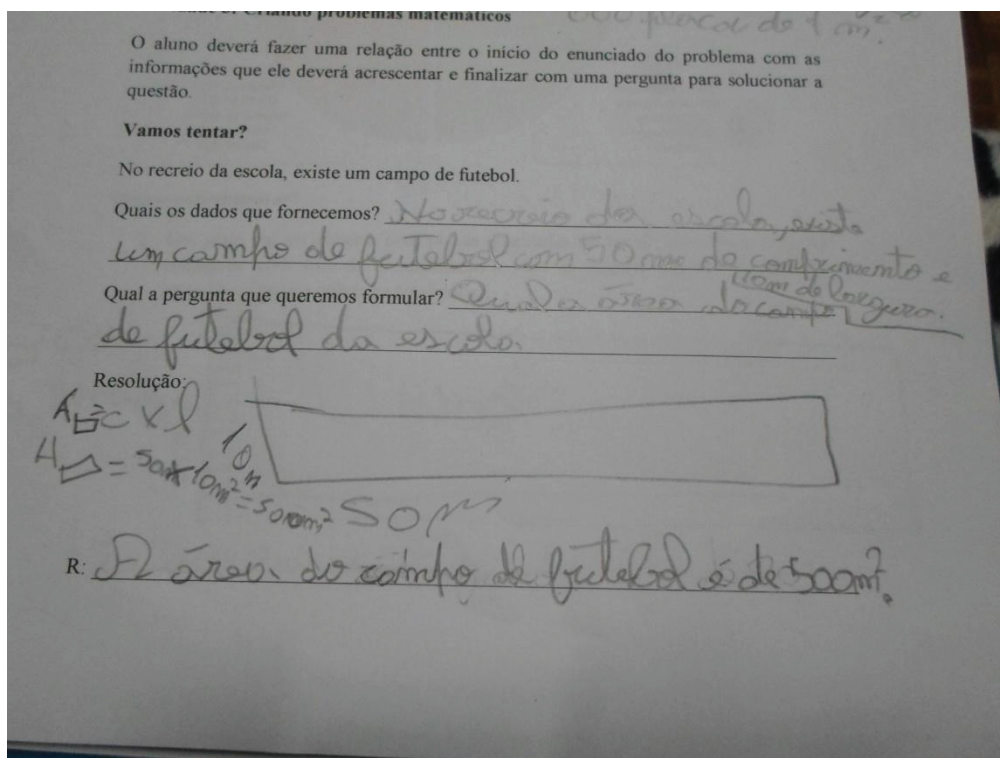 Criando problemas matemáticos
de 1 m².
O aluno deverá fazer uma relação entre o início do enunciado do problema com as
informações que ele deverá acrescentar e finalizar com uma pergunta para solucionar a
questão.
Vamos tentar?
No recreio da escola, existe um campo de futebol.
Quais os dados que fornecemos? No recreio da escola, existe
um campo de futebol com 50 m de comprimento e
10m de largura.
Qual a pergunta que queremos formular? Qual a área do campo
de futebol da escola.
Resolução:
A▭=c x l
10m
A▭ = 50m x 10m²=500m²
50 m
R: A área do campo de futebol é de 500m².